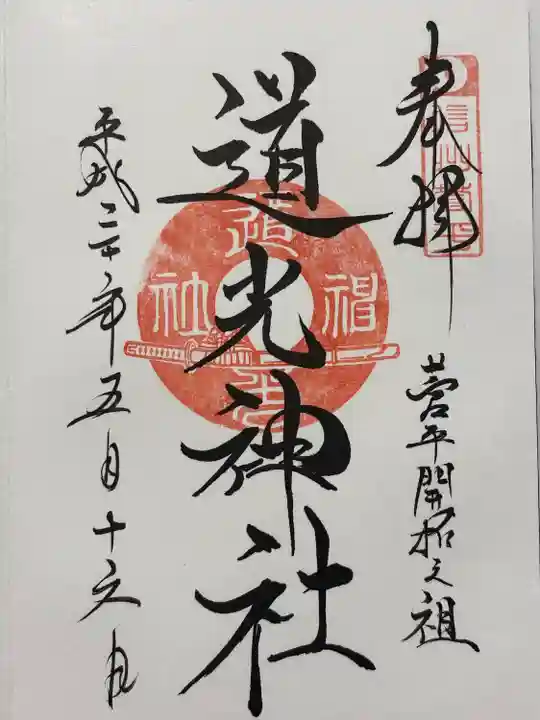 奉拝
信州菅平
菅平開拓之祖
道光神社
道光神社
平成三十年五月十六日